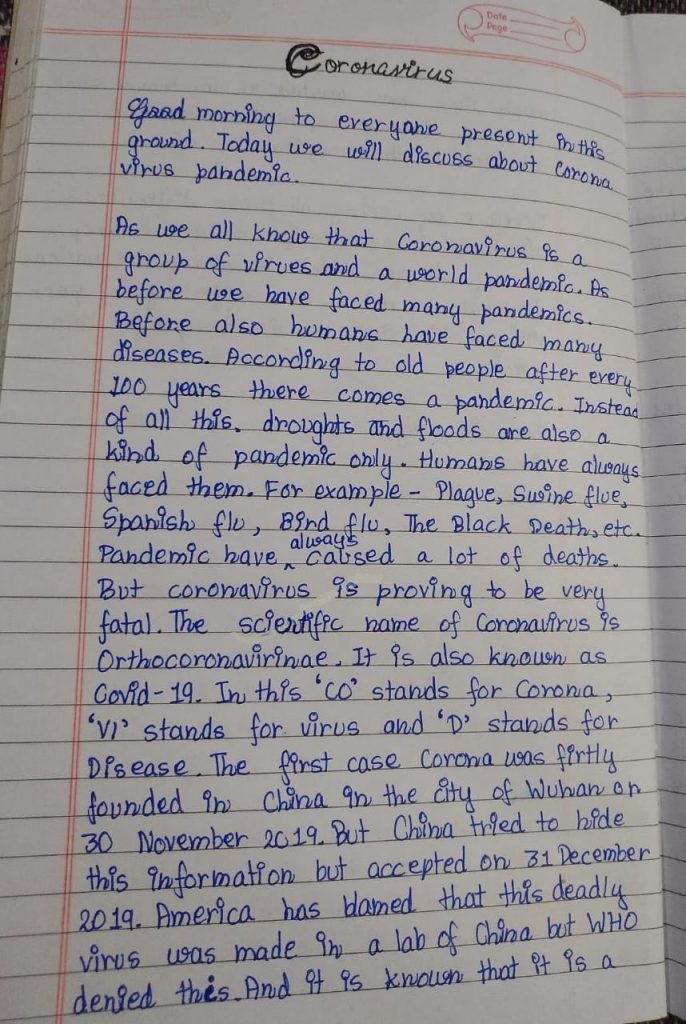 Date
Page
Coronavirus
Good morning to everyone present in this
ground. Today we will discuss about Corona
virus pandemic.
As we all know that Coronavirus is a
group of virues and a world pandemic. As
before we have faced many pandemics.
Before also humans have faced many
diseases. According to old people after every
100 years there comes a pandemic. Instead
of all this. droughts and floods are also a
kind of pandemic only. Humans have always
faced them. For example - Plague, Swine flue,
Spanish flu, Bird flu, The Black Death, etc.
Pandemic have always caused a lot of deaths.
But coronavirus is proving to be very
fatal. The scientific name of Coronavirus is
Orthocoronavirinae. It is also known as
Covid-19. In this 'CO' stands for Corona,
'VI' stands for virus and 'D' stands for
Disease. The first case Corona was firtly
founded in China in the city of Wuhan on
30 November 2019. But China tried to hide
this information but accepted on 31 December
2019. America has blamed that this deadly
virus was made in a lab of China but WHO
denied this. And it is known that it is a